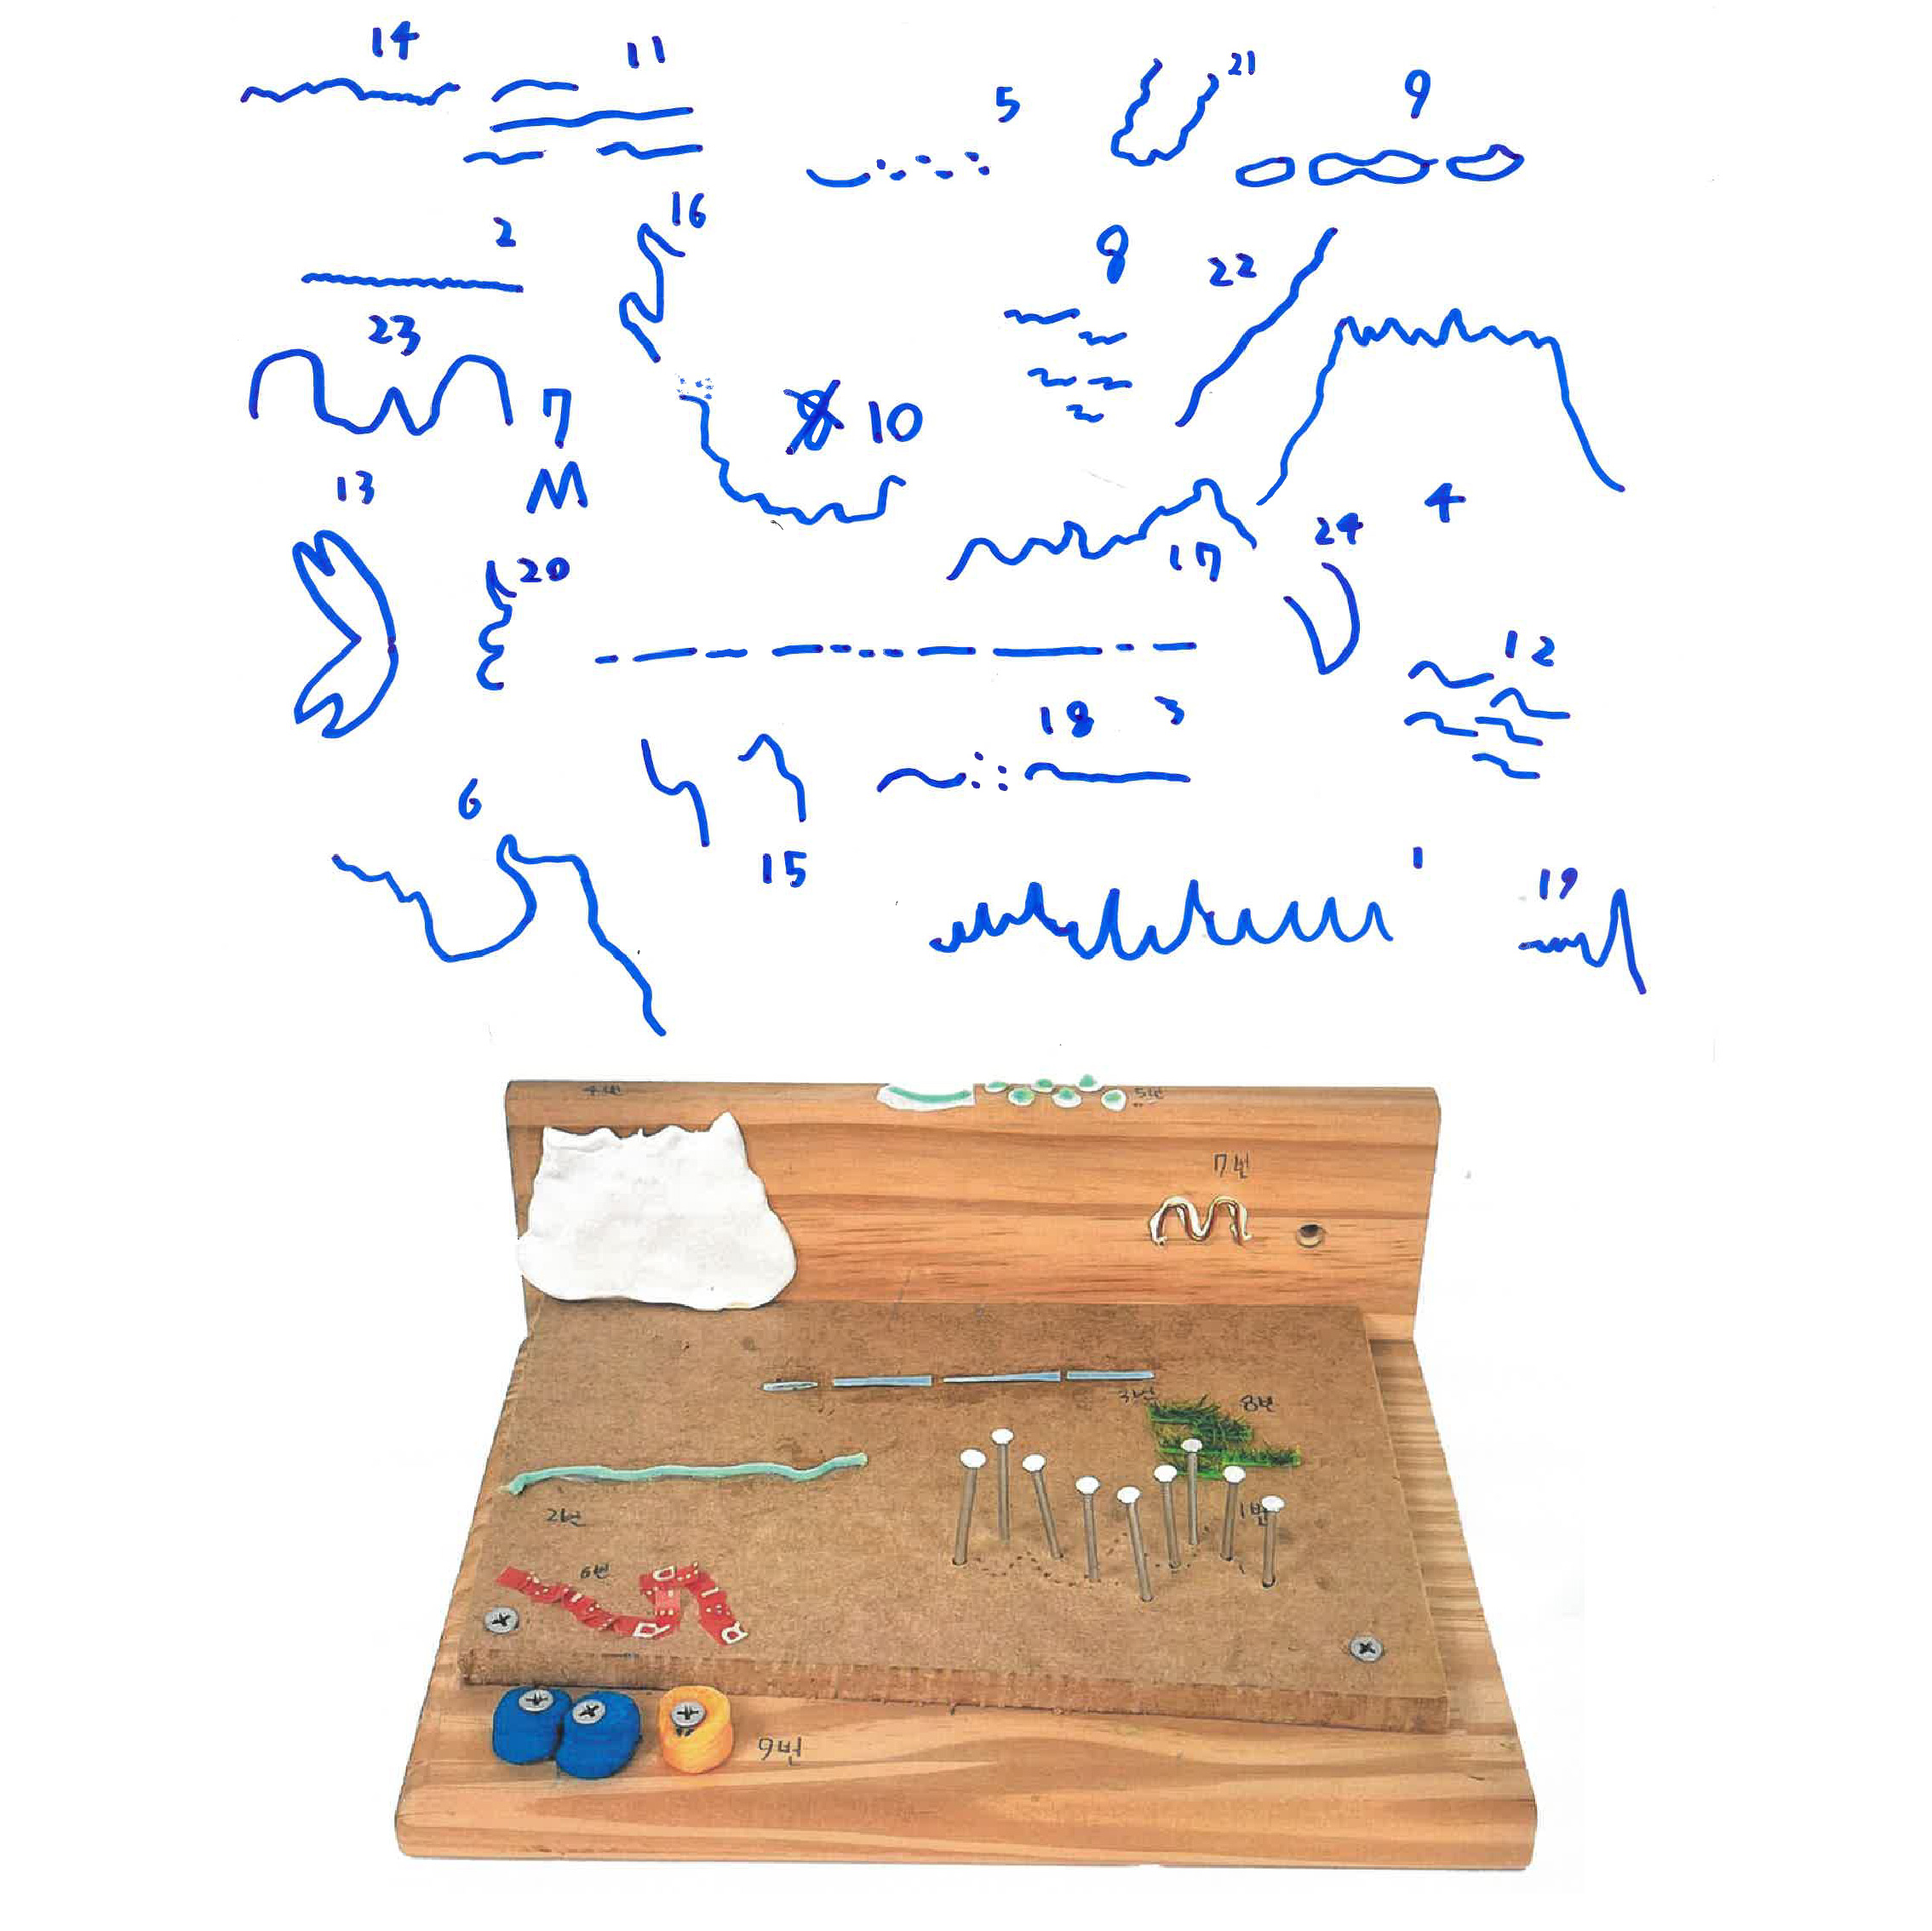 14
11
5
21
9
2
16
8
22
23
7
10
13
4
17
24
20
12
18
3
6
15
1
19
4번
5번
7번
3번
8번
2번
1번
6번
9번